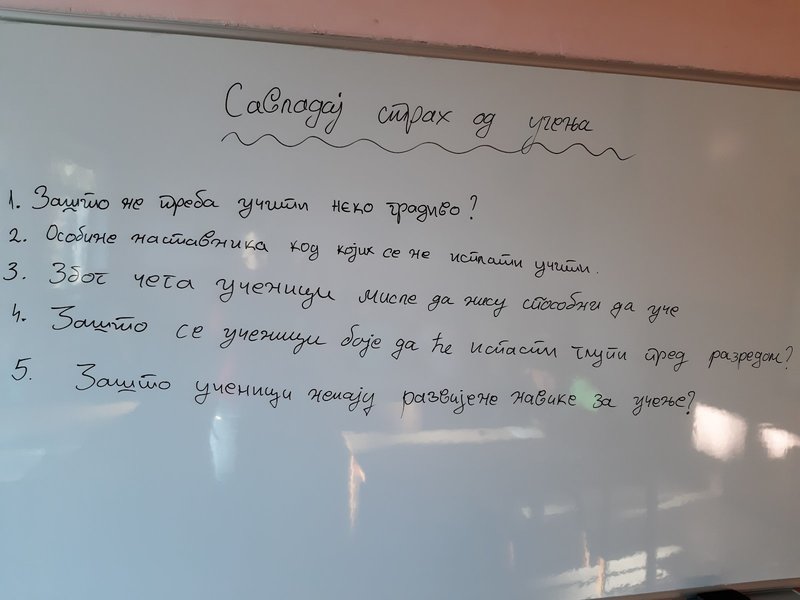 Савладај страх од учења
1. Зашто не треба учити неко градиво?
2. Особине наставника код којих се не исплати учити.
3. Због чега ученици мисле да нису способни да уче
4. Зашто се ученици боје да ће испасти глупи пред разредом?
5. Зашто ученици немају развијене навике за учење?